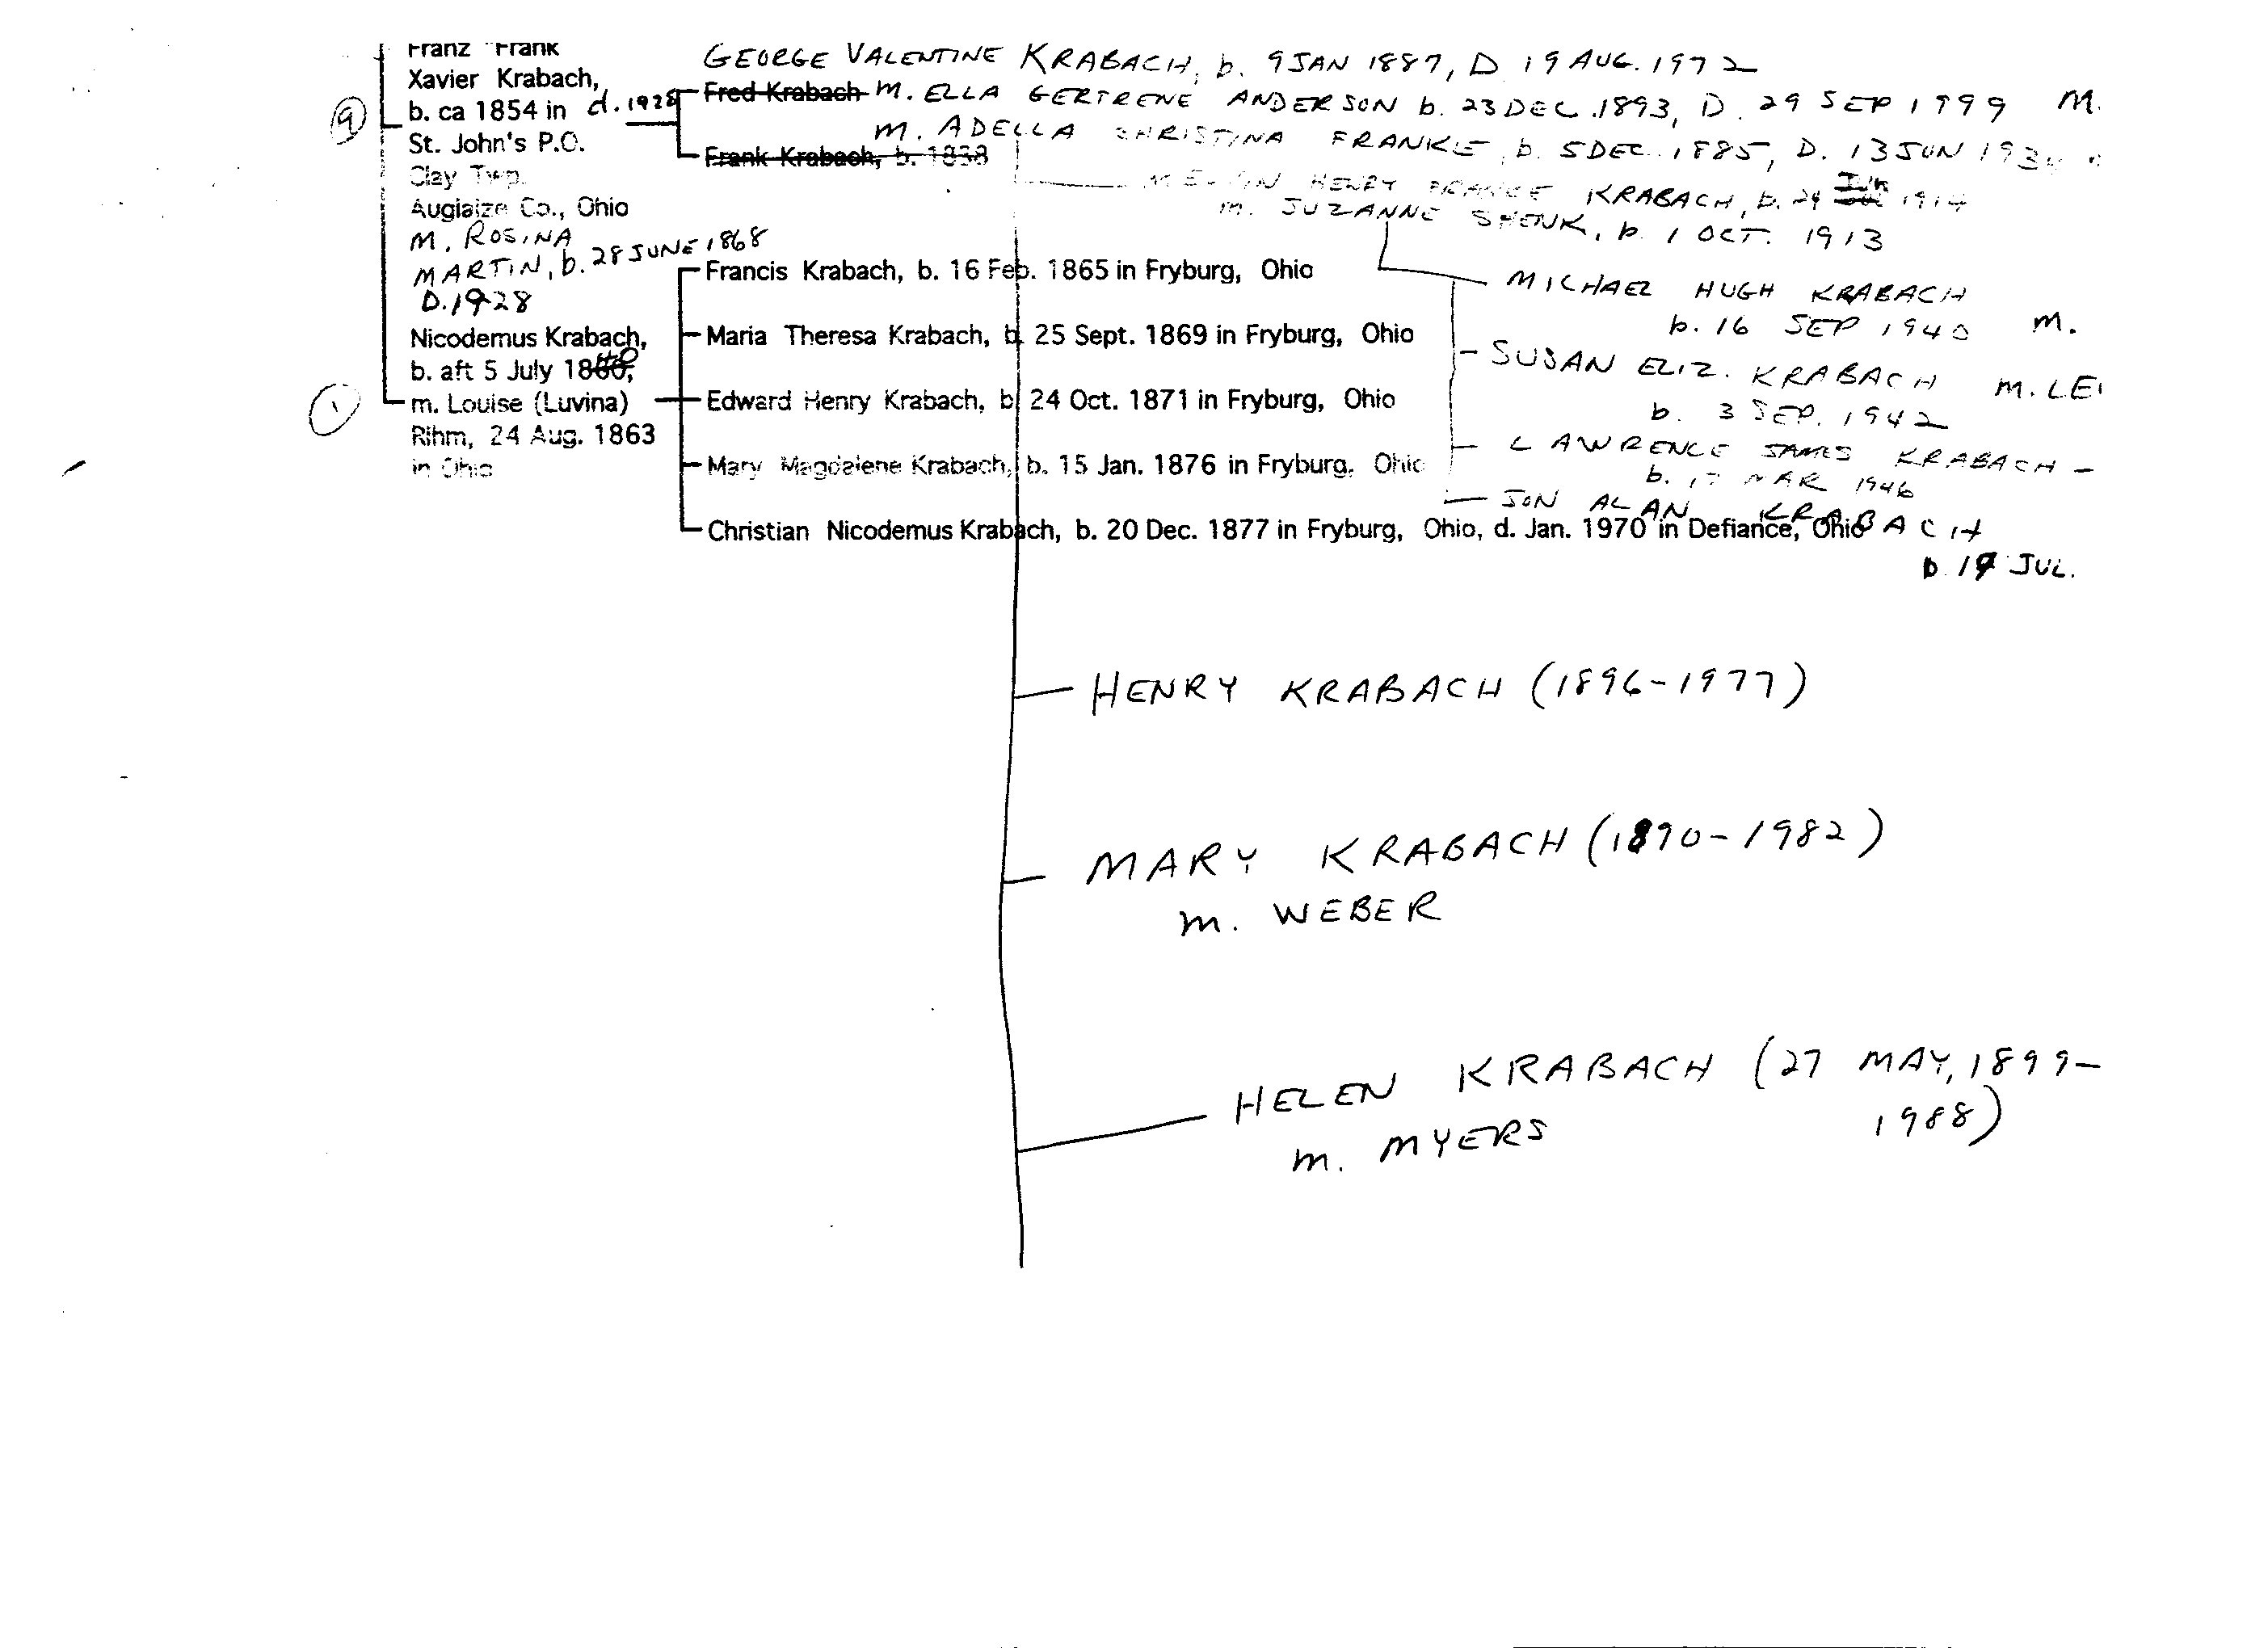 Franz "Frank
Xavier Krabach,
b. ca 1854 in d. 1928
St. John's P.O.
Clay Twp.
Auglaize Co., Ohio
M. ROSINA
MARTIN, b. 28 JUNE 1868
D. 1928
GEORGE VALENTINE KRABACH, b. 9 JAN 1887, D 19 AUG. 1972
Fred Krabach M. ELLA GERTRENE ANDERSON b. 23 DEC. 1893, D. 29 SEP 1999 M.
m. ADELLA CHRISTINA FRANKE, b. 5 DEC. 1885, D. 13 JUN
Frank Krabach, b. 1858
HENRY KRABACH, b. 29 JUN 1914
m. SUZANNE SHENK, b. 1 OCT. 1913
MICHAEL HUGH KRABACH
b. 16 SEP 1940 M.
SUSAN ELIZ. KRABACH M. LE
b. 3 SEP. 1942
LAWRENCE JAMES KRABACH -
b. MAR 1946
JON ALAN KRABACH
b. 19 JUL.
9
Nicodemus Krabach,
b. aft 5 July 1840
m. Louise (Luvina)
Rihm, 24 Aug. 1863
in Ohio
1
Francis Krabach, b. 16 Feb. 1865 in Fryburg, Ohio
Maria Theresa Krabach, b. 25 Sept. 1869 in Fryburg, Ohio
Edward Henry Krabach, b. 24 Oct. 1871 in Fryburg, Ohio
Mary Magdalene Krabach, b. 15 Jan. 1876 in Fryburg, Ohio
Christian Nicodemus Krabach, b. 20 Dec. 1877 in Fryburg, Ohio, d. Jan. 1970 in Defiance, Ohio
HENRY KRABACH (1896-1977)
MARY KRABACH (1890-1982)
m. WEBER
HELEN KRABACH (27 MAY, 1899-
1988)
m. MYERS